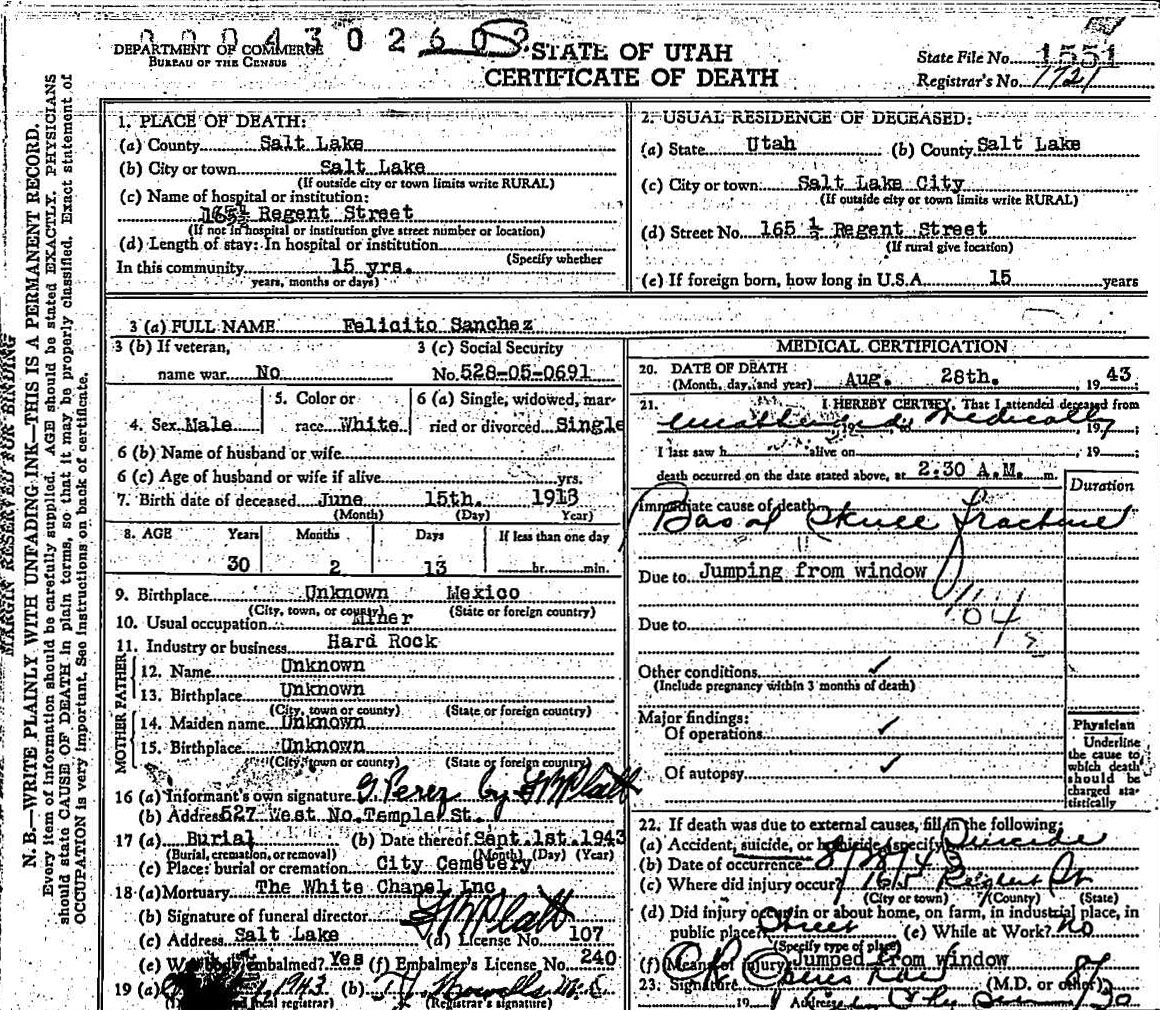 DEPARTMENT OF COMMERCE
BUREAU OF THE CENSUS
STATE OF UTAH
CERTIFICATE OF DEATH
State File No. 1551
Registrar's No. 1721
MARGIN RESERVED FOR BINDING
N. B.—WRITE PLAINLY WITH UNFADING INK—THIS IS A PERMANENT RECORD.
Every item of information should be carefully supplied. AGE should be stated EXACTLY. PHYSICIANS
should state CAUSE OF DEATH in plain terms, so that it may be properly classified. Exact statement of
OCCUPATION is very important. See instructions on back of certificate.
1. PLACE OF DEATH:
(a) County Salt Lake
(b) City or town Salt Lake
(If outside city or town limits write RURAL)
(c) Name of hospital or institution:
165½ Regent Street
(If not in hospital or institution give street number or location)
(d) Length of stay: In hospital or institution
(Specify whether
In this community 15 yrs.
years, months or days)
2. USUAL RESIDENCE OF DECEASED:
(a) State Utah (b) County Salt Lake
(c) City or town: Salt Lake City
(If outside city or town limits write RURAL)
(d) Street No. 165 ½ Regent Street
(If rural give location)
(e) If foreign born, how long in U.S.A. 15 years
3 (a) FULL NAME Felicito Sanchez
3 (b) If veteran, 3 (c) Social Security
name war No No. 528-05-0691
5. Color or 6 (a) Single, widowed, mar-
4. Sex Male race White ried or divorced Single
6 (b) Name of husband or wife
6 (c) Age of husband or wife if alive yrs.
7. Birth date of deceased June 15th. 1913
(Month) (Day) Year)
8. AGE Years Months Days If less than one day
30 2 13 hr. min.
9. Birthplace Unknown Mexico
(City, town, or county) (State or foreign country)
10. Usual occupation Miner
11. Industry or business Hard Rock
FATHER
12. Name Unknown
13. Birthplace Unknown
(City, town or county) (State or foreign country)
MOTHER
14. Maiden name Unknown
15. Birthplace Unknown
(City, town or county) (State or foreign country)
16 (a) Informant's own signature G Perez by
(b) Address 527 West No. Temple St.
17 (a) Burial (b) Date thereof Sept. 1st. 1943
(Burial, cremation, or removal) (Month) (Day) (Year)
(c) Place: burial or cremation City Cemetery
18 (a) Mortuary The White Chapel Inc
(b) Signature of funeral director
(c) Address Salt Lake (d) License No. 107
(e) Was body embalmed? Yes (f) Embalmer's License No. 240
19 (a) 1943 (b)
(Registrar's signature)
MEDICAL CERTIFICATION
20. DATE OF DEATH
(Month, day, and year) Aug. 28th. , 1943
21. I HEREBY CERTIFY, That I attended deceased from
I last saw h alive on , 19 ;
death occurred on the date stated above, at 2:30 A.M. m.
Duration
Immediate cause of death
Basal Skull fracture
Due to Jumping from window
164
Due to
Other conditions ✓
(Include pregnancy within 3 months of death)
Major findings:
Of operations ✓
Of autopsy ✓
Physician
Underline
the cause to
which death
should be
charged sta-
tistically
22. If death was due to external causes, fill in the following:
(a) Accident, suicide, or homicide (specify) Suicide
(b) Date of occurrence 8/28/43
(c) Where did injury occur? 165 Regent St
(City or town) (County) (State)
(d) Did injury occur in or about home, on farm, in industrial place, in
public place? Street (e) While at Work? no
(Specify type of place)
(f) Means of injury Jumped from window
23. Signature (M.D. or other)
19 Address